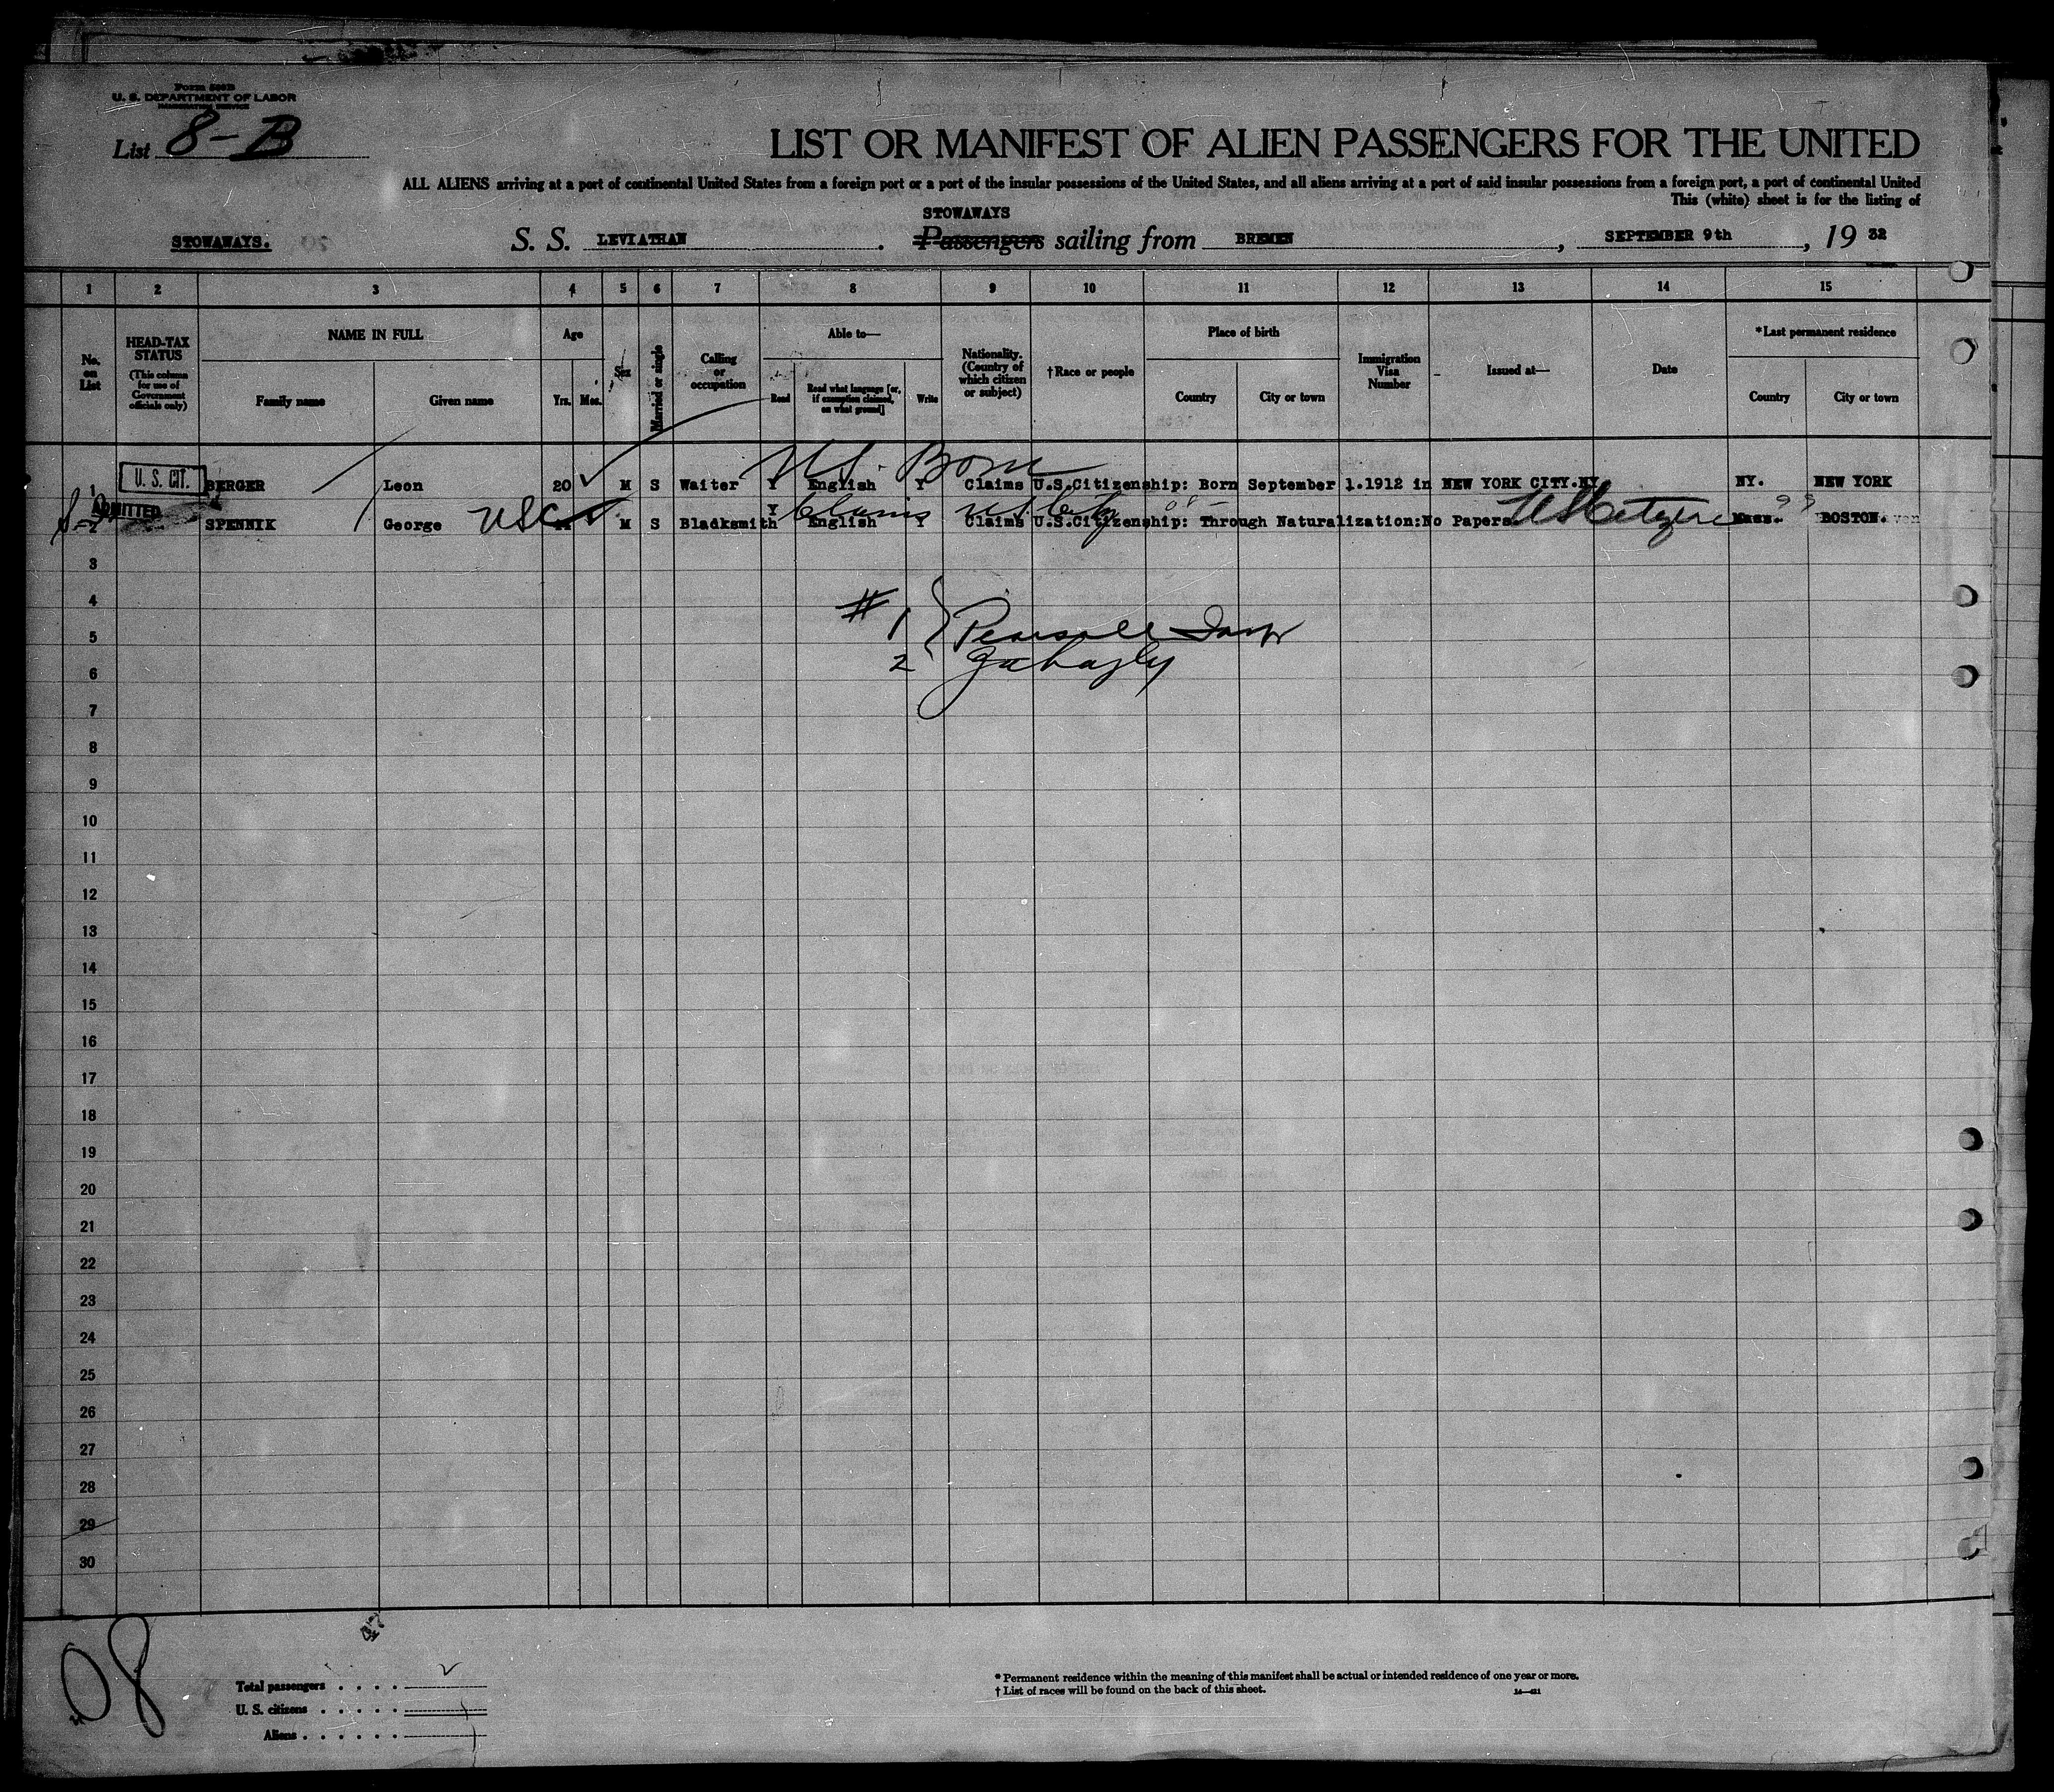 Form 500B
U. S. DEPARTMENT OF LABOR
IMMIGRATION SERVICE
List 8-B
LIST OR MANIFEST OF ALIEN PASSENGERS FOR THE UNITED
ALL ALIENS arriving at a port of continental United States from a foreign port or a port of the insular possessions of the United States, and all aliens arriving at a port of said insular possessions from a foreign port, a port of continental United
This (white) sheet is for the listing of
STOWAWAYS
STOWAWAYS. S. S. LEVIATHAN . Passengers sailing from BREMEN , SEPTEMBER 9th , 19 32
1 2 3 4 5 6 7 8 9 10 11 12 13 14 15
No. on List
HEAD-TAX STATUS
(This column for use of Government officials only)
NAME IN FULL
Family name Given name
Age
Yrs. Mos.
Sex
Married or single
Calling or occupation
Able to—
Read Read what language [or, if exemption claimed, on what ground] Write
Nationality. (Country of which citizen or subject)
†Race or people
Place of birth
Country City or town
Immigration Visa Number
Issued at—
Date
*Last permanent residence
Country City or town
US. Born
1 U. S. CIT. BERGER Leon 20 M S Waiter Y English Y Claims U.S.Citizenship: Born September 1.1912 in NEW YORK CITY.NY. NY. NEW YORK
ADMITTED
Claims US Citz
2 SPENNIK George USC M S Bladksmith Y English Y Claims U.S.Citizenship: Through Naturalization:No Papers. US Citizen Mass. BOSTON.
3
4
# 1
5
2
6
7
8
9
10
11
12
13
14
15
16
17
18
19
20
21
22
23
24
25
26
27
28
29
30
47
08
Total passengers
U. S. citizens
Aliens
* Permanent residence within the meaning of this manifest shall be actual or intended residence of one year or more.
† List of races will be found on the back of this sheet.